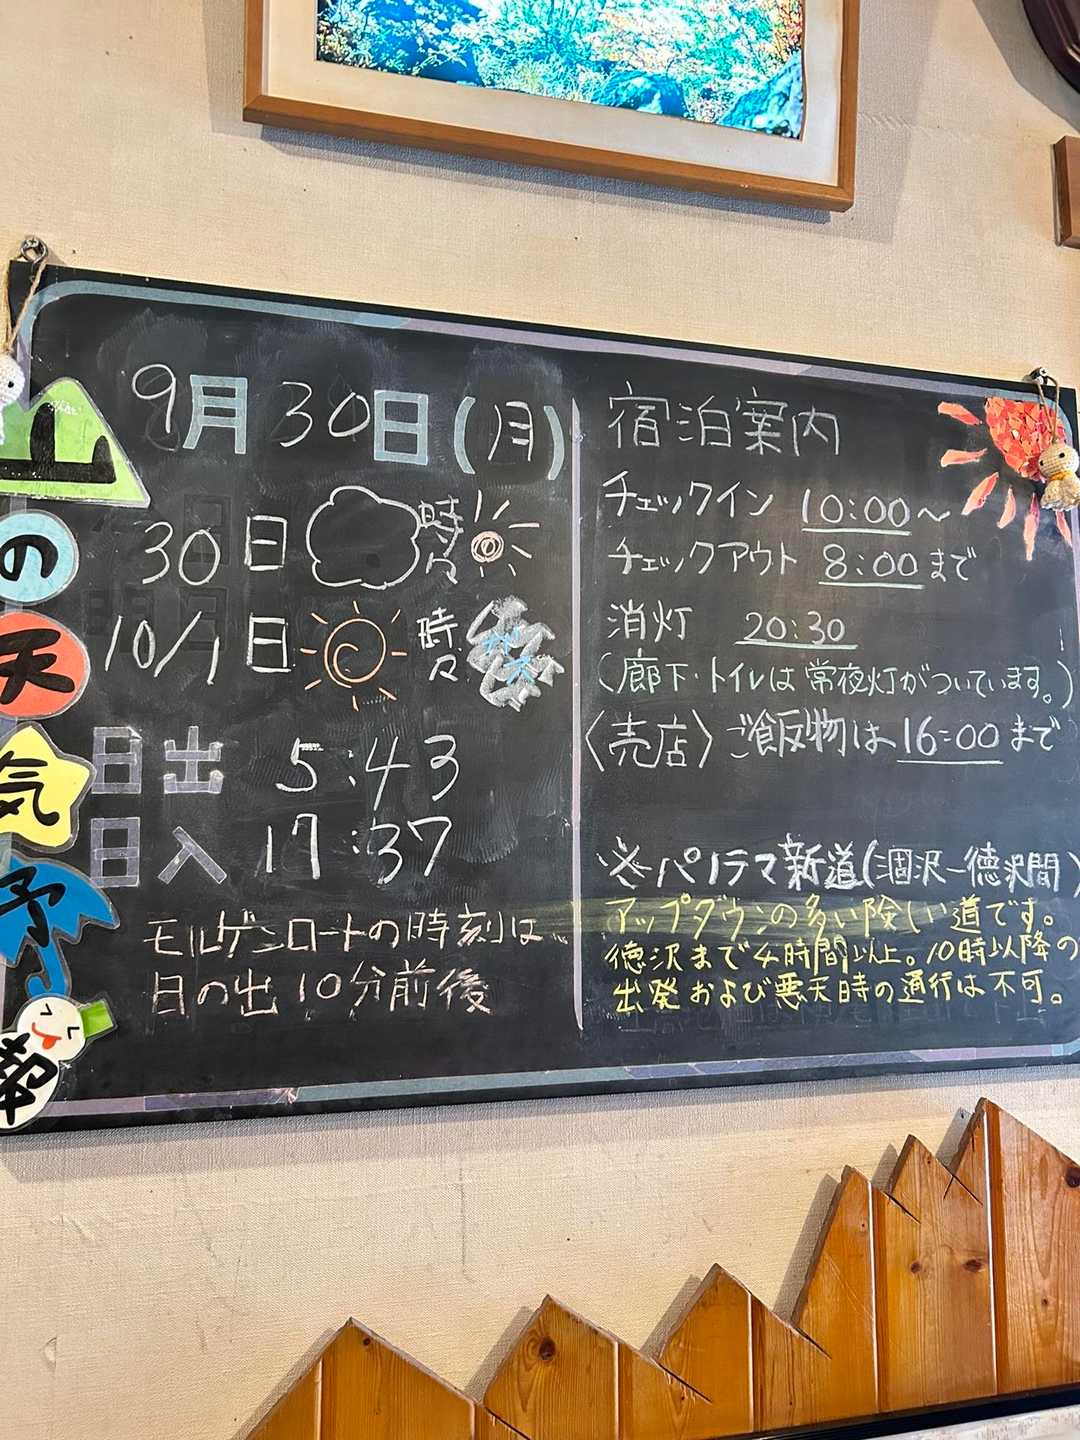 山の天気予報
9月30日(月)
30日 時々
10/1日 時々 ガス
日出 5:43
日入 17:37
モルゲンロートの時刻は
日の出10分前後
宿泊案内
チェックイン 10:00〜
チェックアウト 8:00まで
消灯 20:30
(廊下・トイレは常夜灯がついています。)
〈売店〉ご飯物は16:00まで
※パノラマ新道(涸沢-徳沢間)
アップダウンの多い険しい道です。
徳沢まで4時間以上。10時以降の
出発および悪天時の通行は不可。